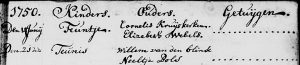 1750. Kinders. Ouders. Getuijgen.
Teuntje Cornelis Kruijskerken
Elizabeth
Den 25 Teunis Willem van den blinde
Neeltje Pols